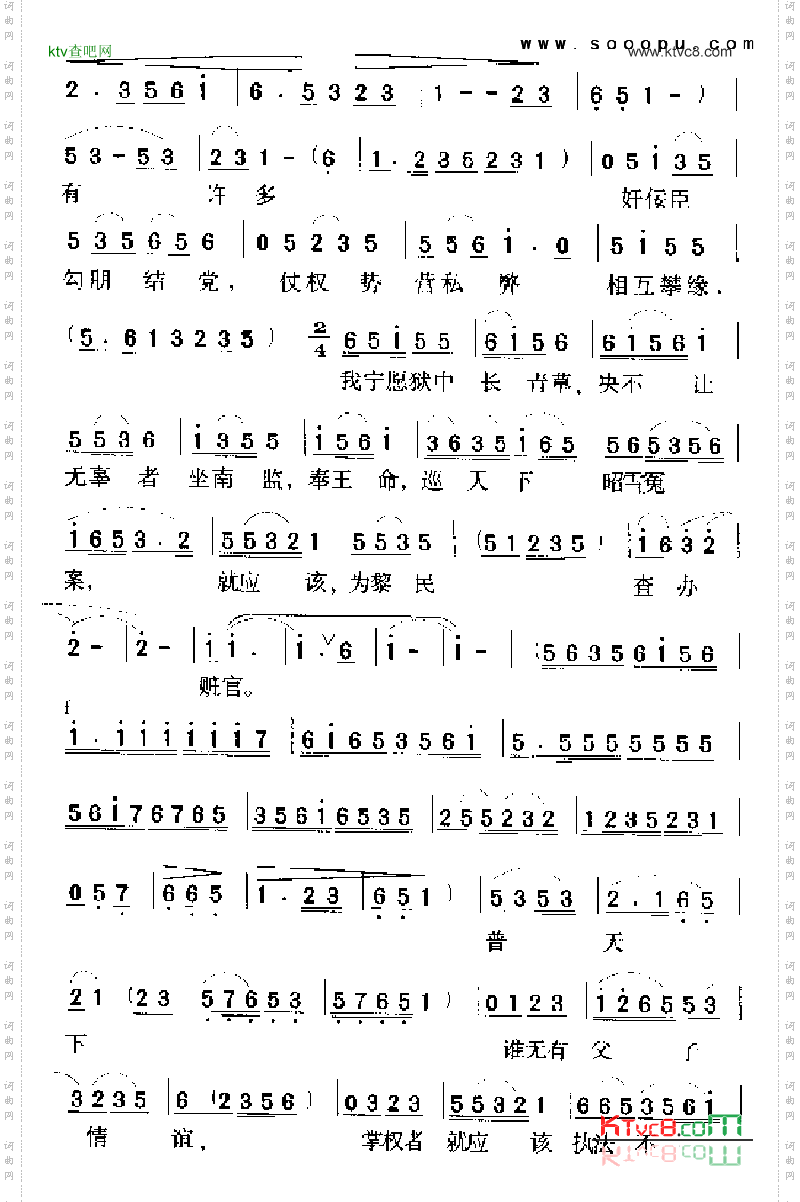 ktv查吧网
www.sooopu.com
www.ktvc8.com
2 . 3 5 6 i | 6 . 5 3 2 3 | 1 - - 2 3 | 6 5 1 - ) |
5 3 - 5 3 | 2 3 1 - ( 6 | 1 . 2 3 5 2 3 1 ) | 0 5 i 3 5
有 许 多 奸佞臣
5 3 5 6 5 6 | 0 5 2 3 5 | 5 5 6 i . 0 | 5 i 5 5
勾朋 结 党， 仗权 势 营私 弊 相互攀缘．
( 5 . 6 1 3 2 3 5 ) 2/4 6 5 i 5 5 | 6 i 5 6 | 6 i 5 6 i
我宁愿狱中 长 青草，决不 让
5 5 3 6 | i 3 5 5 | i 5 6 i | 3 6 3 5 i 6 5 5 6 5 3 5 6
无辜 者 坐南 监，奉王 命，巡 天 下 昭雪冤
i 6 5 3 . 2 | 5 5 3 2 1 5 5 3 5 | ( 5 1 2 3 5 ) | i 6 3 2
案， 就应 该，为黎 民 查 办
2 - | 2 - | i i . | i . 6 | i - | i - | 5 6 3 5 6 i 5 6
赃官。
f
i . i i i i i i 7 | 6 i 6 5 3 5 6 i | 5 . 5 5 5 5 5 5 5
5 6 i 7 6 7 6 5 | 3 5 6 i 6 5 3 5 | 2 5 5 2 3 2 | 1 2 3 5 2 3 1
0 5 7 | 6 6 5 | 1 . 2 3 | 6 5 1 ) | 5 3 5 3 | 2 . 1 6 5
普 天
2 1 ( 2 3 5 7 6 5 3 | 5 7 6 5 1 ) | 0 1 2 3 | 1 2 6 5 5 3
下 谁无有 父 子
3 2 3 5 | 6 ( 2 3 5 6 ) | 0 3 2 3 | 5 5 3 2 1 | 6 6 5 3 5 6 i
KTvc8.com
情 谊， 掌权者 就应 该 执法 不